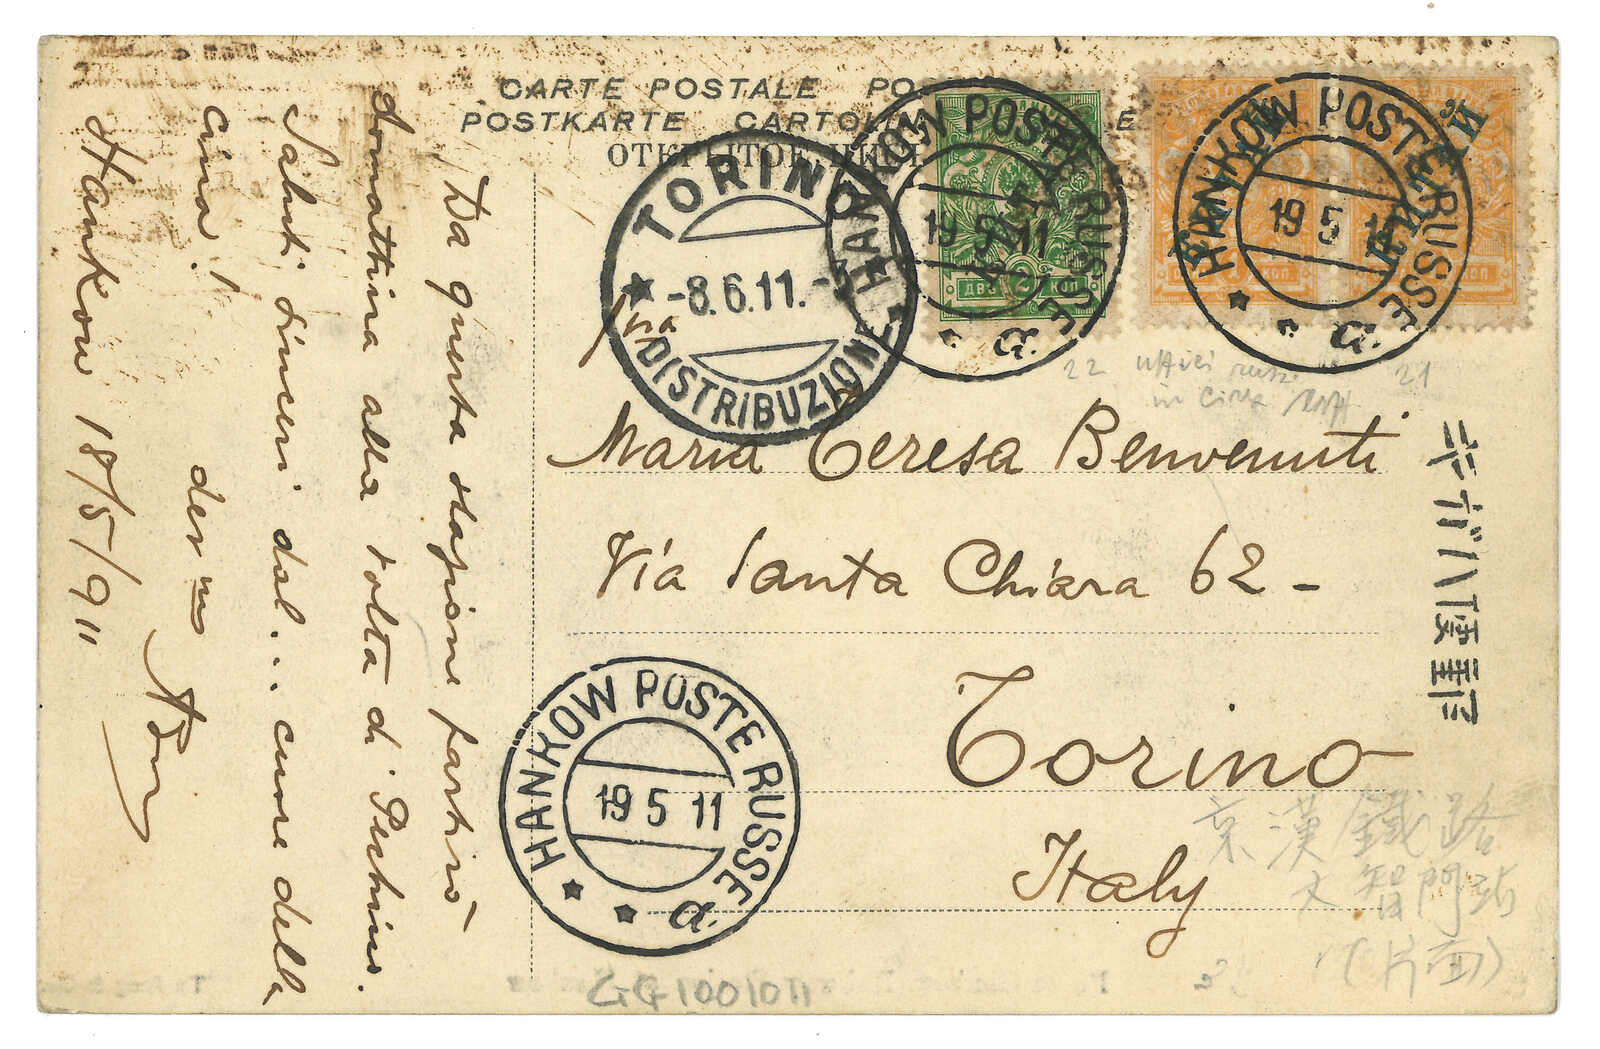 CARTE POSTALE PO
POSTKARTE CARTOLIN E
ОТКРЫТОЕ ПИСЬ
TORINO
-8.6.11.-
DISTRIBUZIONE
HANKOW POSTE RUSSE
19 5 11
a.
ДВѢ 2 КОП
HANKOW POSTE RUSSE
19 5 11
a.
КОП
КОП
22 uffici russi 21
in Cina
Maria Teresa Benvenuti
Via Santa Chiara 62 -
Torino
Italy
Da questa stazione partirò
domattina alla volta di Pechino.
Saluti sinceri dal... cuore della
Cina!
Hankow 18/5/911
HANKOW POSTE RUSSE
19 5 11
a.
京漢鐵路
大智門站
(片面)
GG1001011